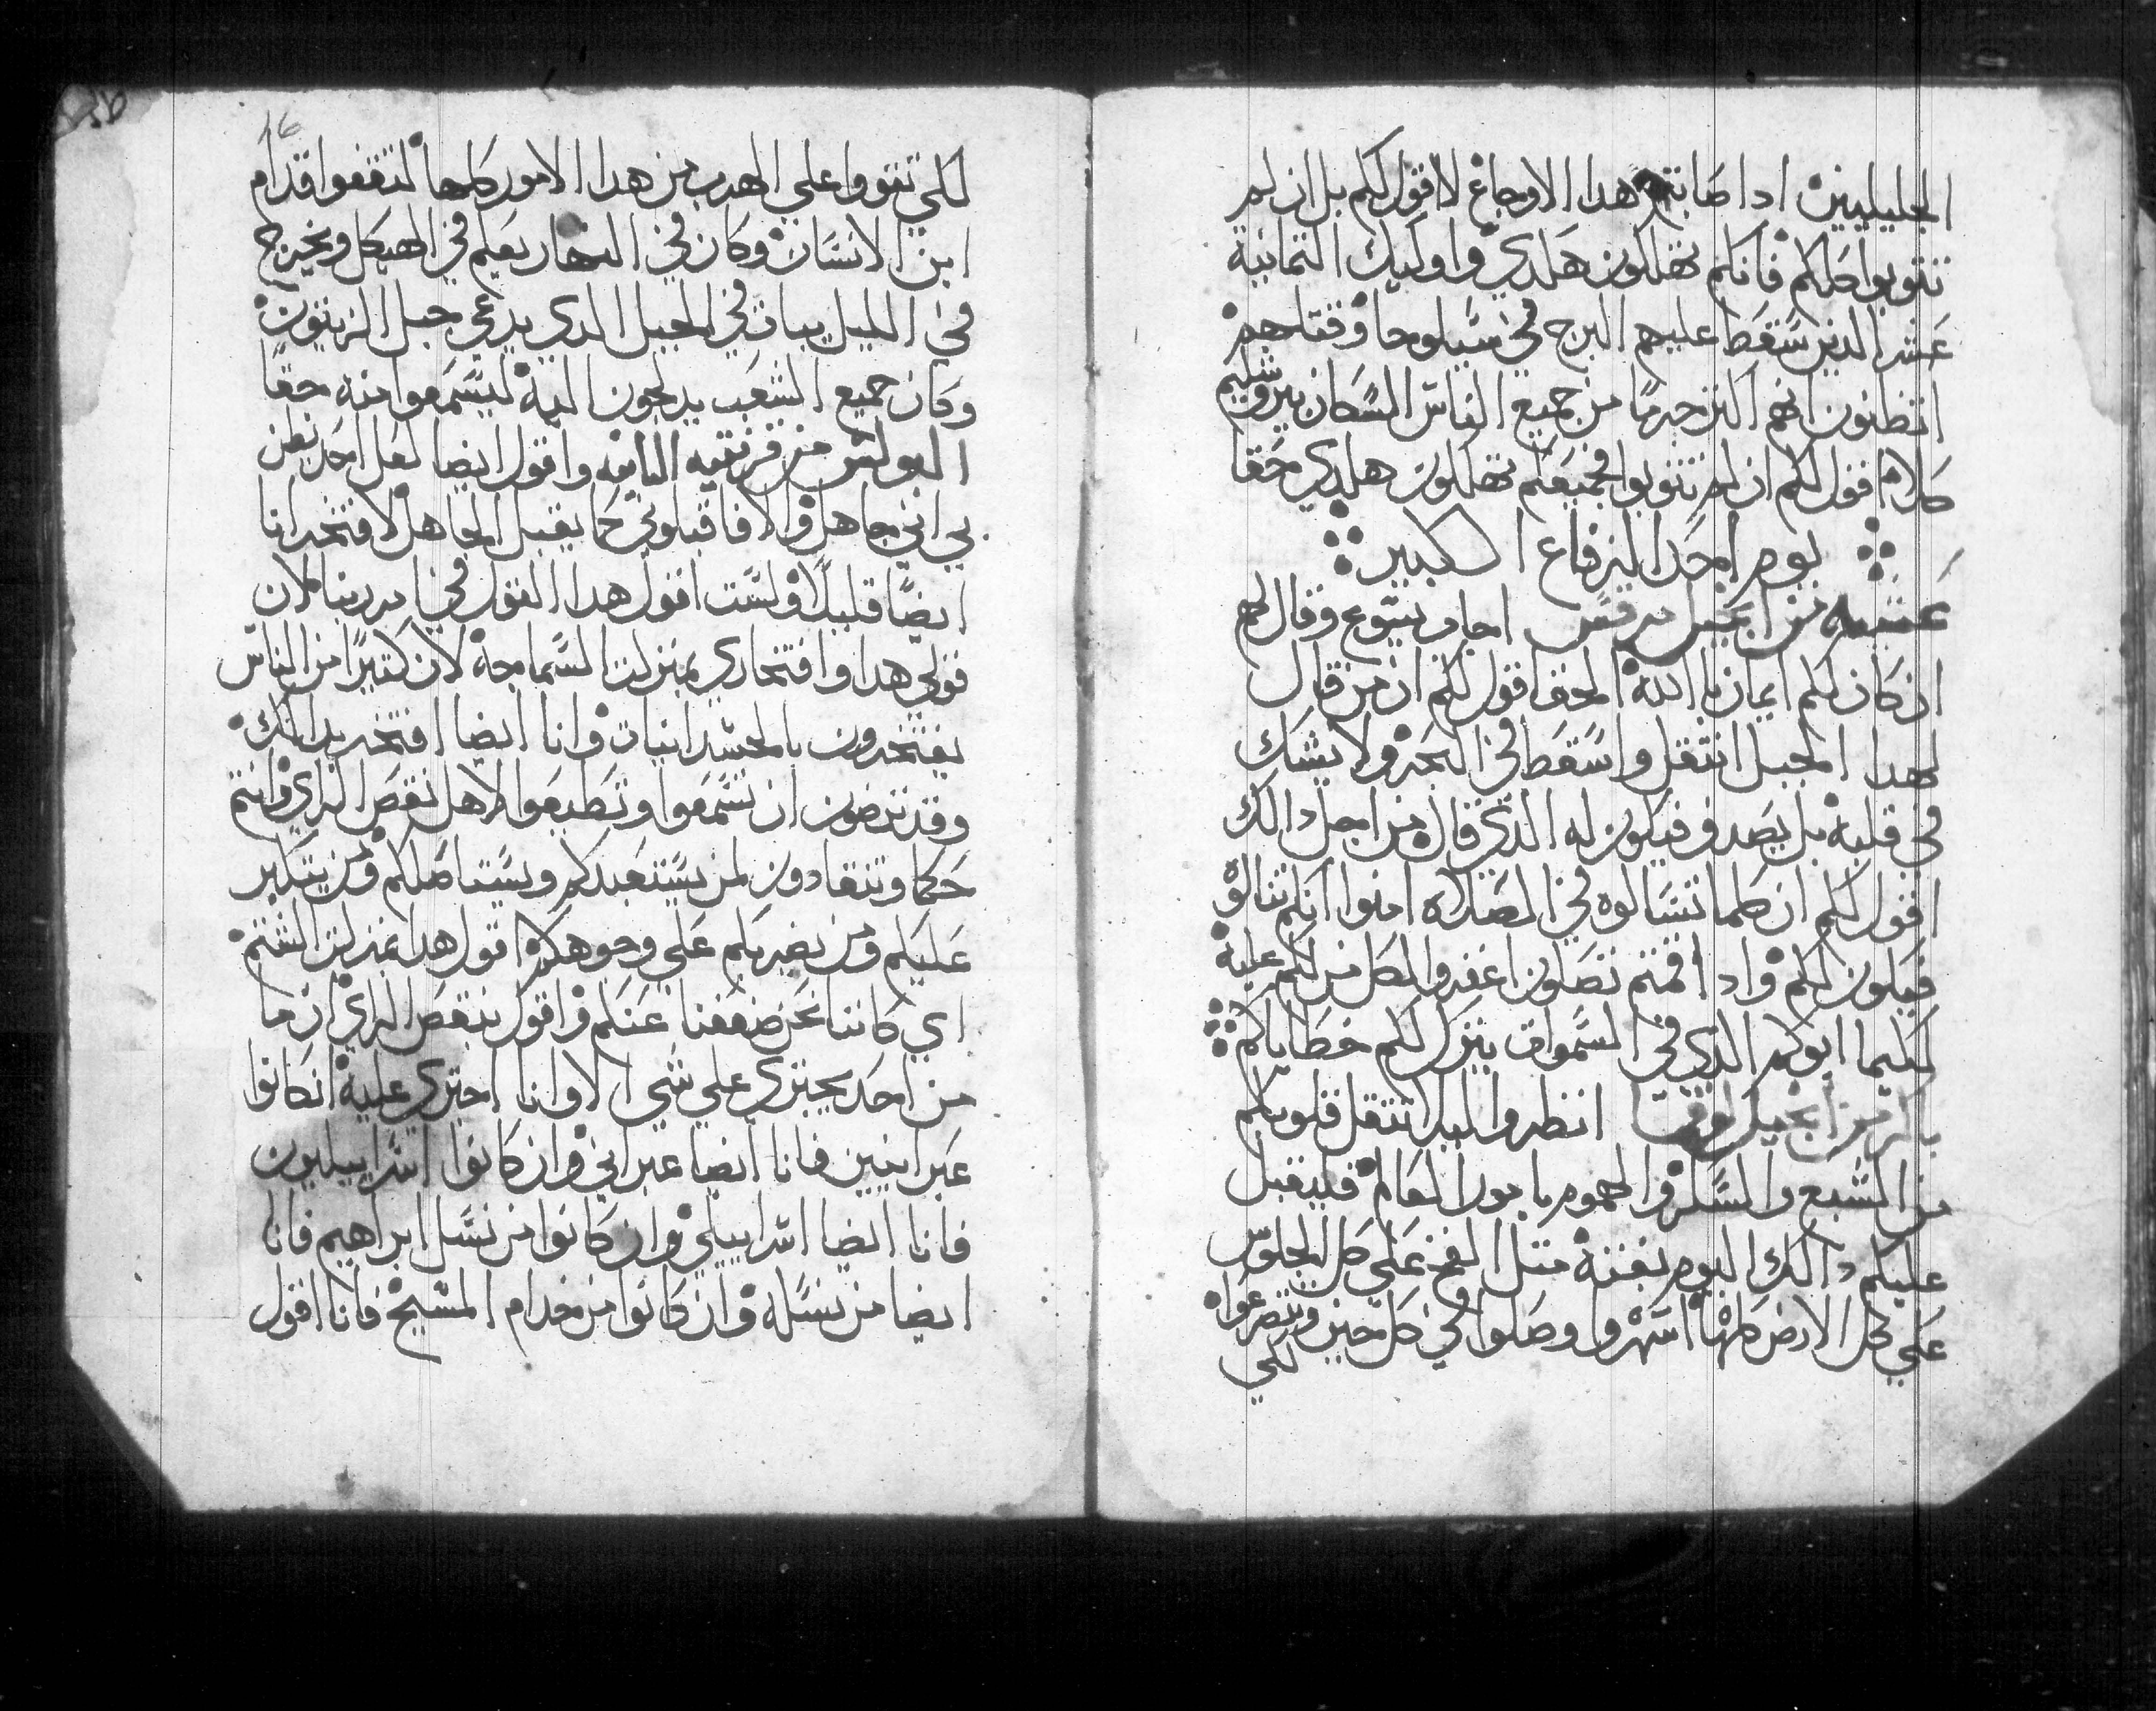 الجليليين اداصابتهم هدا الاوجاع لاقول لكم بل ان لم
تتوبوا كلكم فانكم تهلكون هكدي واوليك التمانية
عشر الدين سقط عليهم البرج في سيلوحا وقتلهم
اتظنون انهم اكتر جرما من جميع الناس السكان بيروشليم
كلا اقول لكم ان لم تتوبوا فجميعكم تهلكون هكدي حقا
يوم احد الرفاع الكبير
عشيه من انجيل مرقس اجاب يسوع وقال لهم
ان كان لكم ايمان بالله الحق اقول لكم ان من قال
لهدا الجبل انتقل واسقط في البحر ولا يشك
في قلبه بل يصدق فيكون له الدي قال من اجل دالك
اقول لكم ان كلما تسالوه في الصلاه امنوا انكم تنالوه
فيكون لكم واد اقمتم تصلون اغفروا لكل من لكم عليه
لكيما ابوكم الدي في السموات يترك لكم خطاياكم
باكر من انجيل لوقا انظروا ليلا تتقل قلوبكم
من الشبع والسكر والهموم بامور العالم فيقبل
عليكم دالك اليوم بغتة متل الفخ علي كل الجلوس
علي كل الارض كلها اسهروا وصلوا في كل حين وتتضرعوا
لكي
16
لكي تقووا علي الهرب من هدا الامور كلها لتقفوا قدام
ابن الانسان وكان في النهار يعلم في الهيكل ويخرج
في الليل يبات في الجبل الدي يدعي جبل الزيتون
وكان جميع الشعب يدلجون اليه ليسمعوا منه حقا
البولس من قرنتيه التانيه واقول ايضا لعل احد يظن
بي اني جاهل والا فاقبلوني كما يقبل الجاهل لافتخر انا
ايضا قليلا ولست اقول هدا القول في امر ربنا لان
قولي هدا وافتخاري بمنزلة السماجة لان كتيرا من الناس
يفتخرون بالجسدانيات وانا ايضا افتخر بدالك
وقد ترضون ان تسمعوا وتطيعوا لاهل نقص الراي وانتم
حكما وتنقادون لمن يستعبدكم ويستاصلكم ومن يتكبر
عليكم ومن يضربكم علي وجوهكم اقول هدا بمنزلة الشتم
اي كاننا نحن ضعفنا عنكم واقول بنقص الراي ان ما
من احد يجتري علي شي الا وانا اجتري عليه انكانوا
عبرانيين فانا ايضا عبراني وان كانوا اسراييليون
فانا ايضا اسراييلي وان كانوا من نسل ابراهيم فانا
ايضا من نسله وان كانوا من خدام المسيح فانا اقول